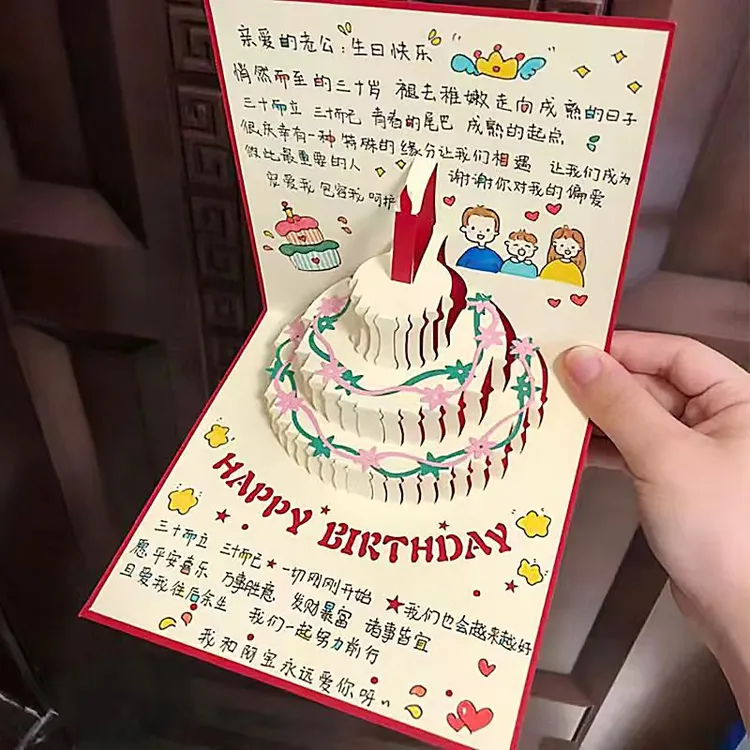 亲爱的老公:生日快乐
悄然而至的三十岁 褪去稚嫩走向成熟的日子
三十而立 三十而已 青春的尾巴 成熟的起点
很庆幸有一种特殊的缘分让我们相遇 让我们成为
彼此最重要的人 谢谢你对我的偏爱
宠爱我 包容我 呵护
HAPPY BIRTHDAY
三十而立 三十而已 一切刚刚开始 我们也会越来越好
愿平安喜乐 万事胜意 发财暴富 诸事皆宜
且爱我往后余生 我们一起努力前行
我和阿宝永远爱你呀~